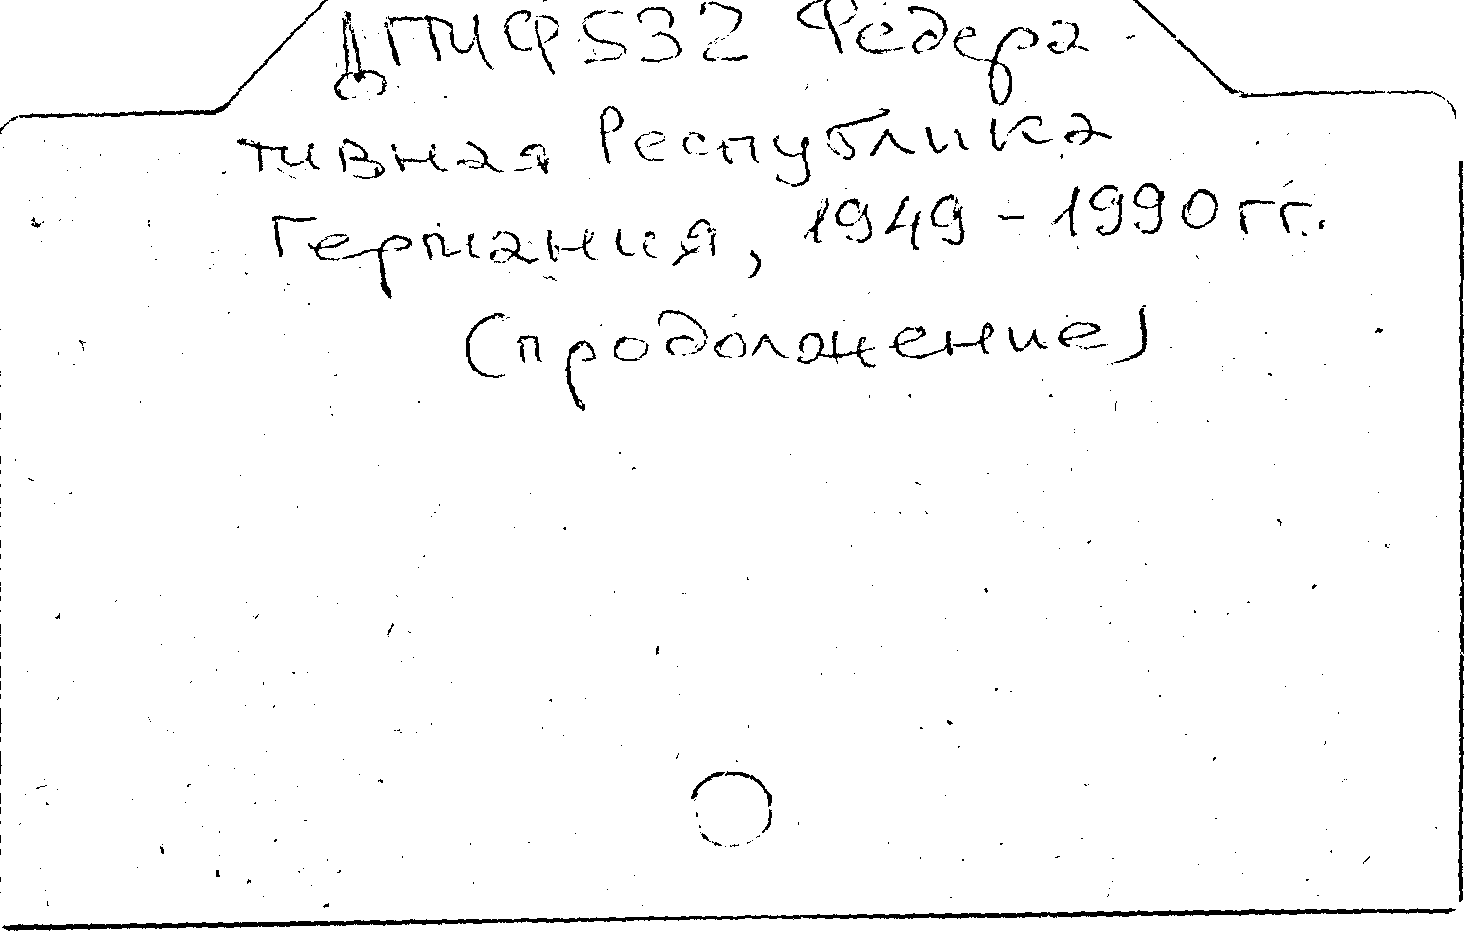 ДПЧФ532 Федера-
тивная Республика
Германия, 1949-1990 гг.
(продолжение)